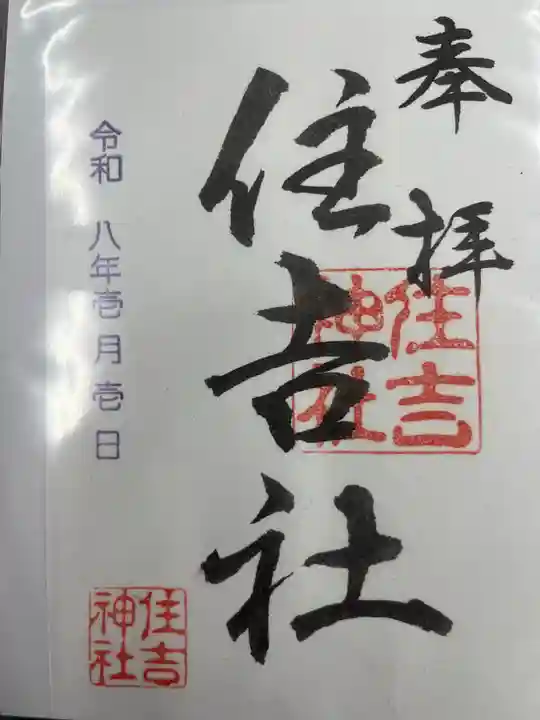 奉拝
住吉
神社
住吉社
令和 八年壱月壱日
住吉
神社